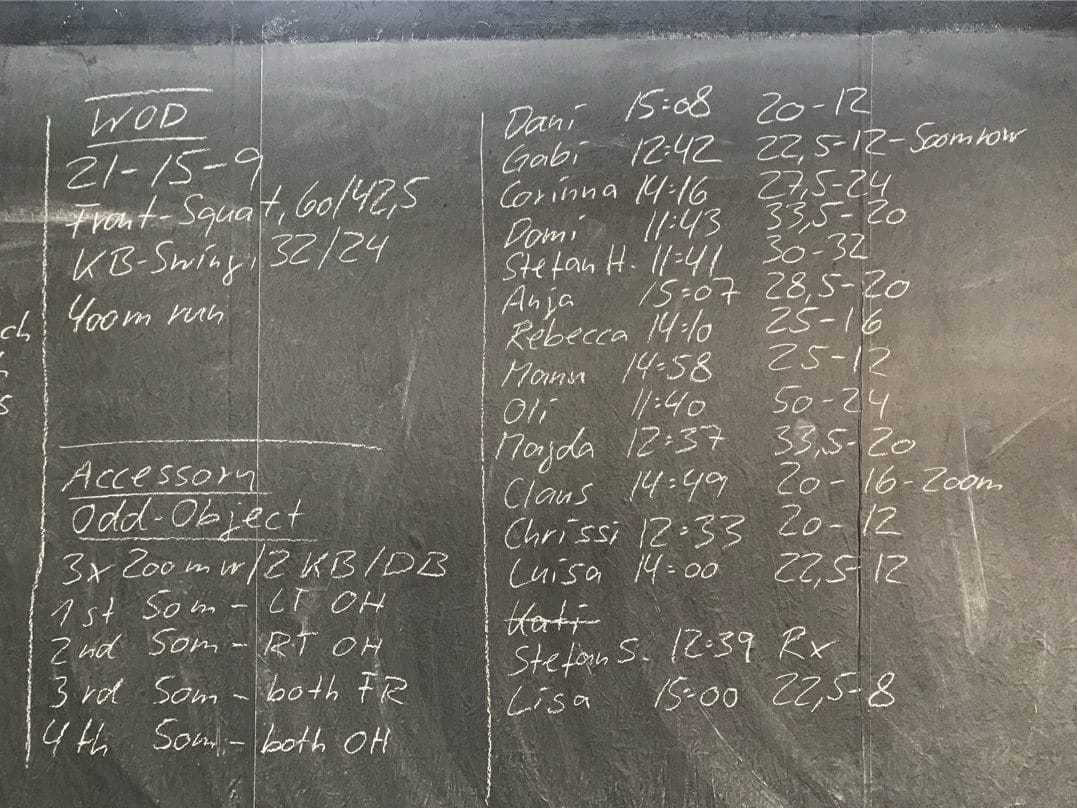 WOD
21-15-9
Front-Squat, 60/42,5
KB-Swing, 32/24
400m run
Accessory
Odd-Object
3x 200m w/2 KB/DB
1st 50m - LT OH
2nd 50m - RT OH
3rd 50m - both FR
4th 50m - both OH
ch
s
Dani 15:08 20-12
Gabi 12:42 22,5-12-500m row
Corinna 14:16 27,5-24
Domi 11:43 33,5-20
Stefan H. 11:41 30-32
Anja 15:07 28,5-20
Rebecca 14:10 25-16
Manu 14:58 25-12
Oli 11:40 50-24
Magda 12:37 33,5-20
Claus 14:49 20-16-200m
Chrissi 12:33 20-12
Luisa 14:00 22,5-12
Kati
Stefan S. 12:39 Rx
Lisa 15:00 22,5-8